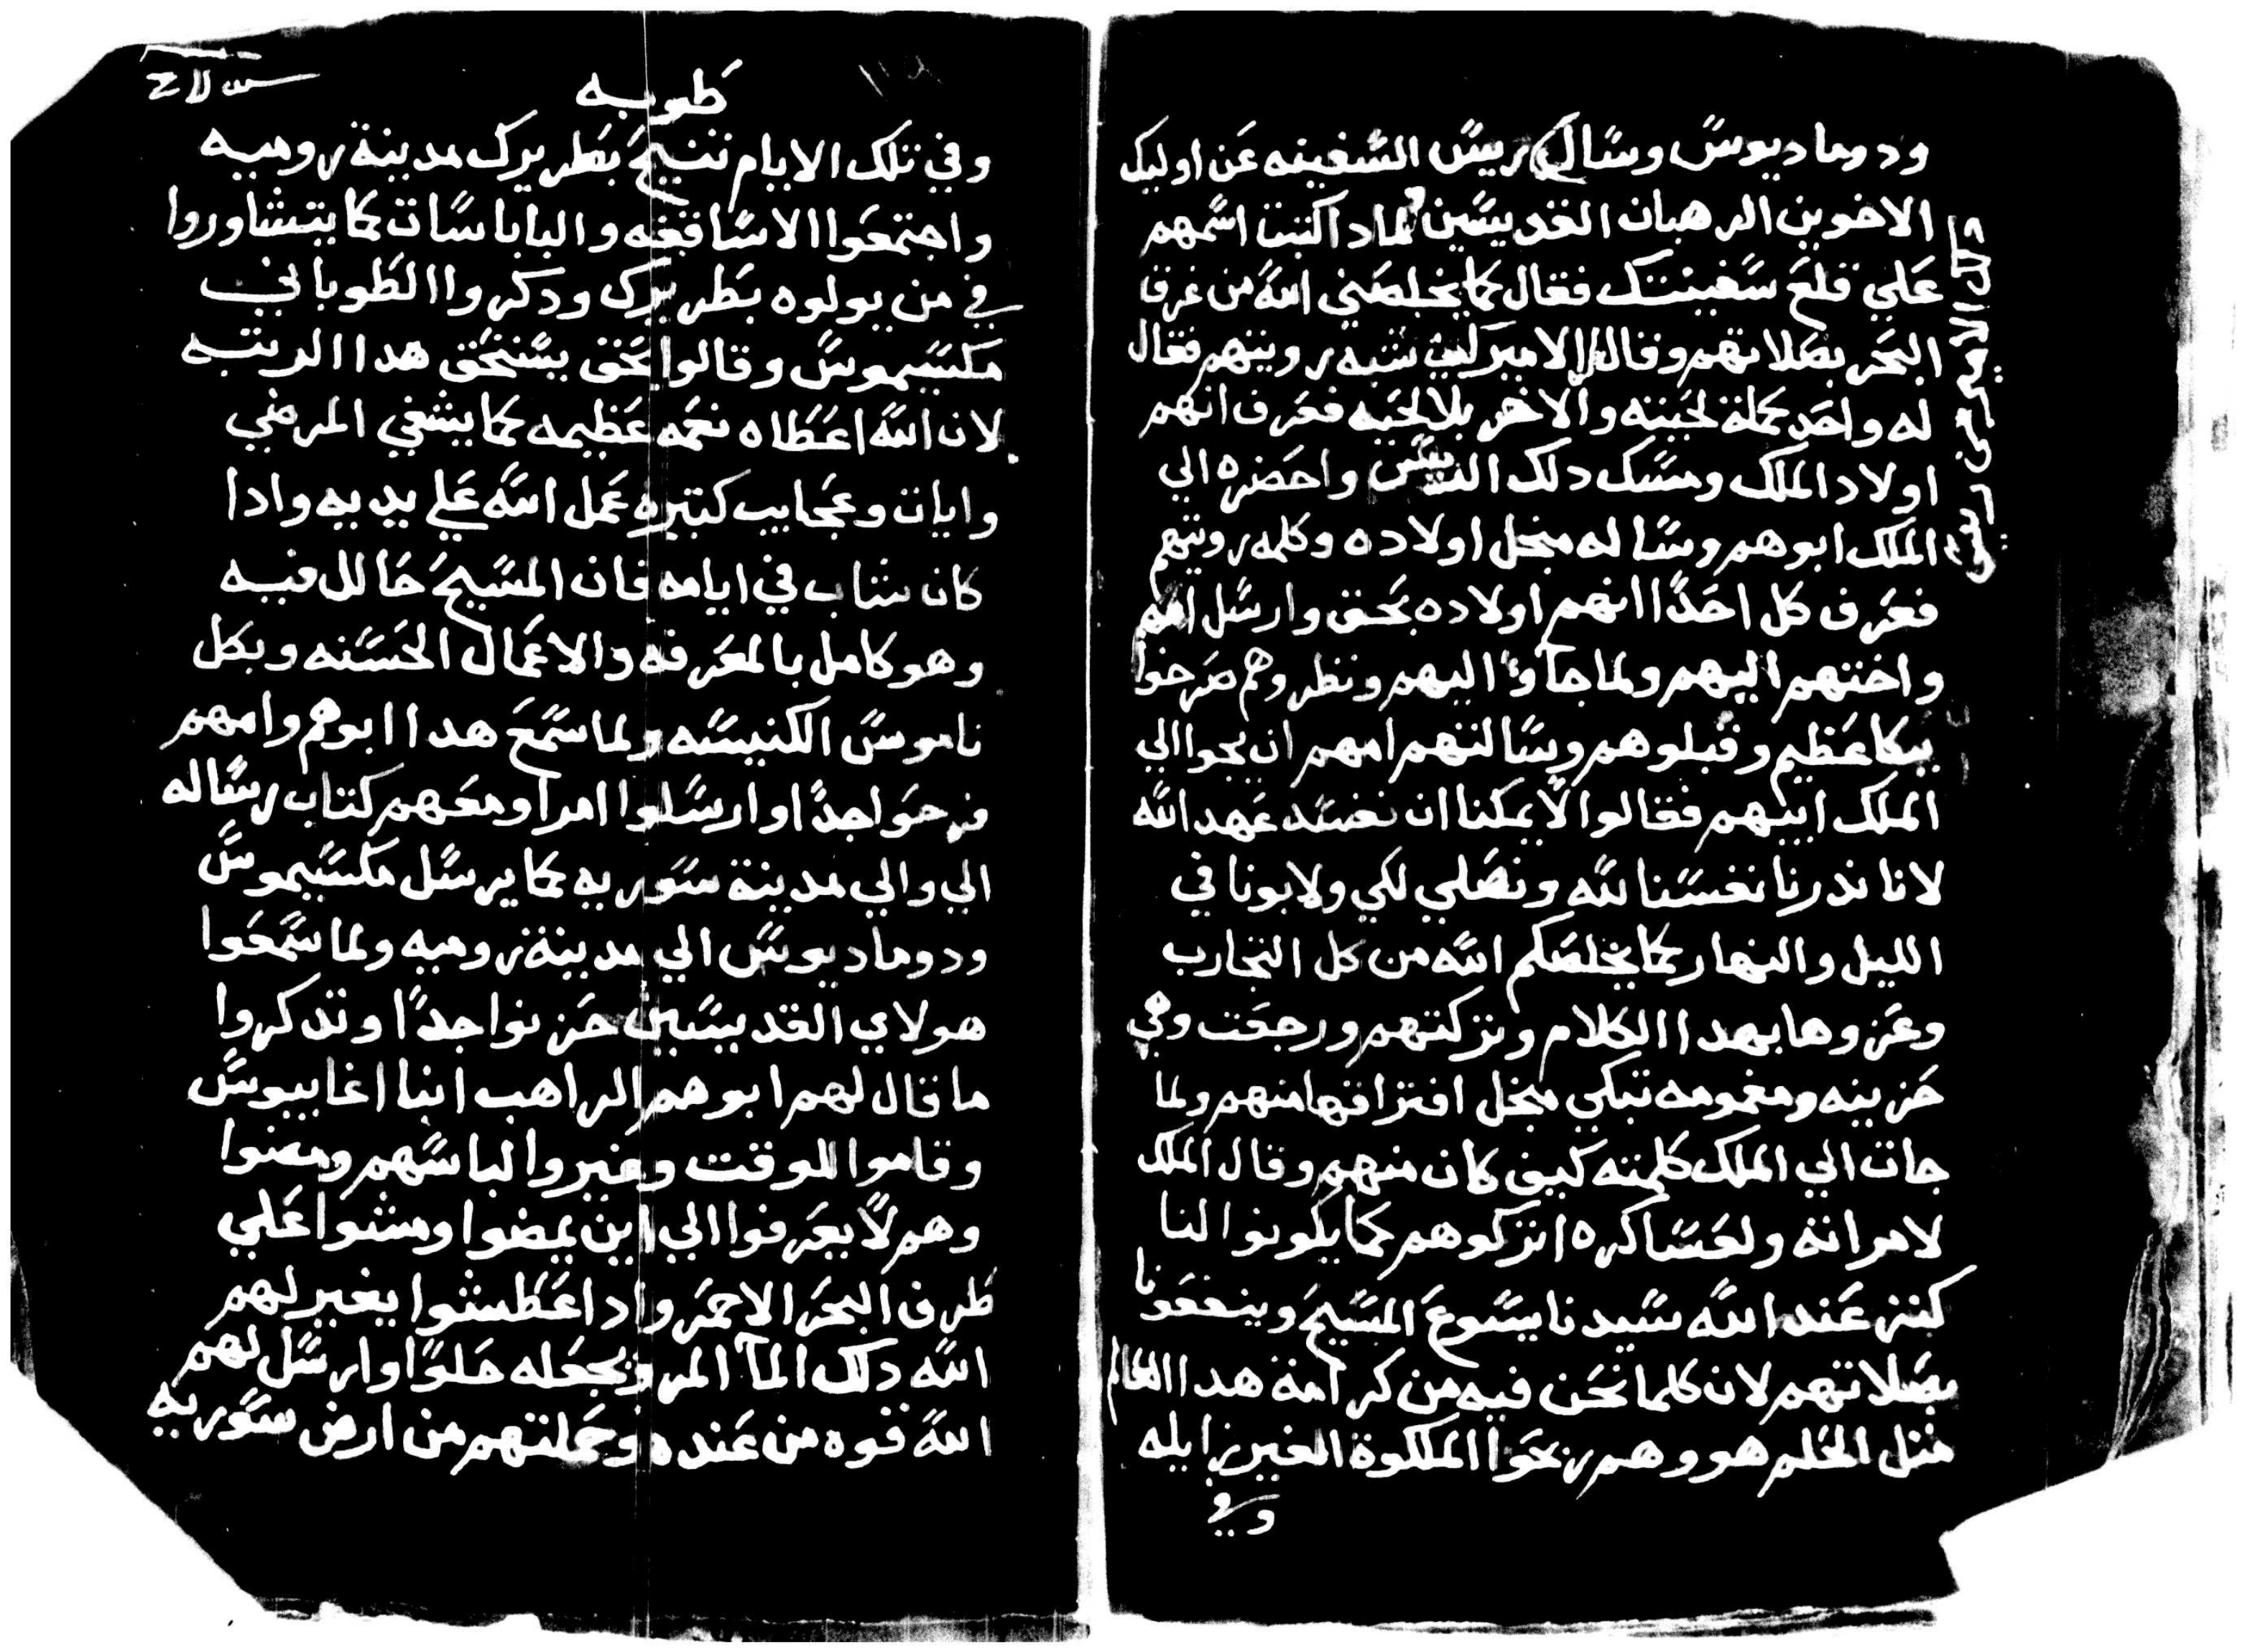 ودوماديوس وسال ريس السفينه عن اوليك
الاخوين الرهبان القديسين لمادا كتبت اسمهم
علي قلع سفينتك فقال كما يخلصني الله من غرق
البحر بصلاتهم وقال الامير ايش شبه رويتهم فقال
له واحد بمكملة لحيته والاخر بلا لحيه فعرف انهم
اولاد الملك ومسك دلك الريس واحضره الي
الملك ابوهم وساله منجل اولاده وكلمه رويتهم
فعرف كل احدًا انهم اولاده بحق وارسل امهم
واختهم اليهم ولما جاوا اليهم ونظروهم صرخوا
ببكا عظيم وقبلوهم وسالتهم امهم ان يجوا الي
الملك ابيهم فقالوا لا يمكنا ان نفسد عهد الله
لانا ندرنا نفسنا لله ونصلي لكي ولابونا في
الليل والنهار كما يخلصكم الله من كل التجارب
وعزوها بهدا الكلام وتركتهم ورجعت وهي
حزينه ومغمومه تبكي منجل افتراقها منهم ولما
جات الي الملك كلمته كيف كان منهم وقال الملك
لامراته ولعساكره اتركوهم كما يكونوا لنا
كنز عند الله سيدنا يسوع المسيح وينفعونا
بصلاتهم لان كلما نحن فيه من كرامة هدا العالم
متل الحلم هو وهم ربحوا الملكوة الغير زايله
وفي
طوبه
وفي تلك الايام تنيح بطريرك مدينة روميه
واجتمعوا الاساقفه والباباسات كما يتشاوروا
في من يولوه بطريرك ودكروا الطوباني
مكسيموس وقالوا بحق يستحق هدا الرتبه
لان الله اعطاه نعمه عظيمه كما يشفي المرضي
وايات وعجايب كتيره عمل الله علي يديه وادا
كان شاب في ايامه فان المسيح حالل فيه
وهو كامل بالمعرفه والاعمال الحسنه وبكل
ناموس الكنيسه ولما سمع هدا ابوهم وامهم
فرحوا جدًا وارسلوا امرا ومعهم كتاب رساله
الي والي مدينة سوريه كما يرسل مكسيموس
ودوماديوس الي مدينة روميه ولما سمعوا
هولاي القديسين حزنوا جدًا وتدكروا
ما قال لهم ابوهم الراهب انبا اغابيوس
وقاموا للوقت وغيروا لباسهم ومضوا
وهم لا يعرفوا الي اين يمضوا ومشوا علي
طرف البحر الاحمر وادا عطشوا يغير لهم
الله دلك الما المر ويجعله حلوًا وارسل لهم
الله قوه من عنده وحملتهم من ارض سوريه